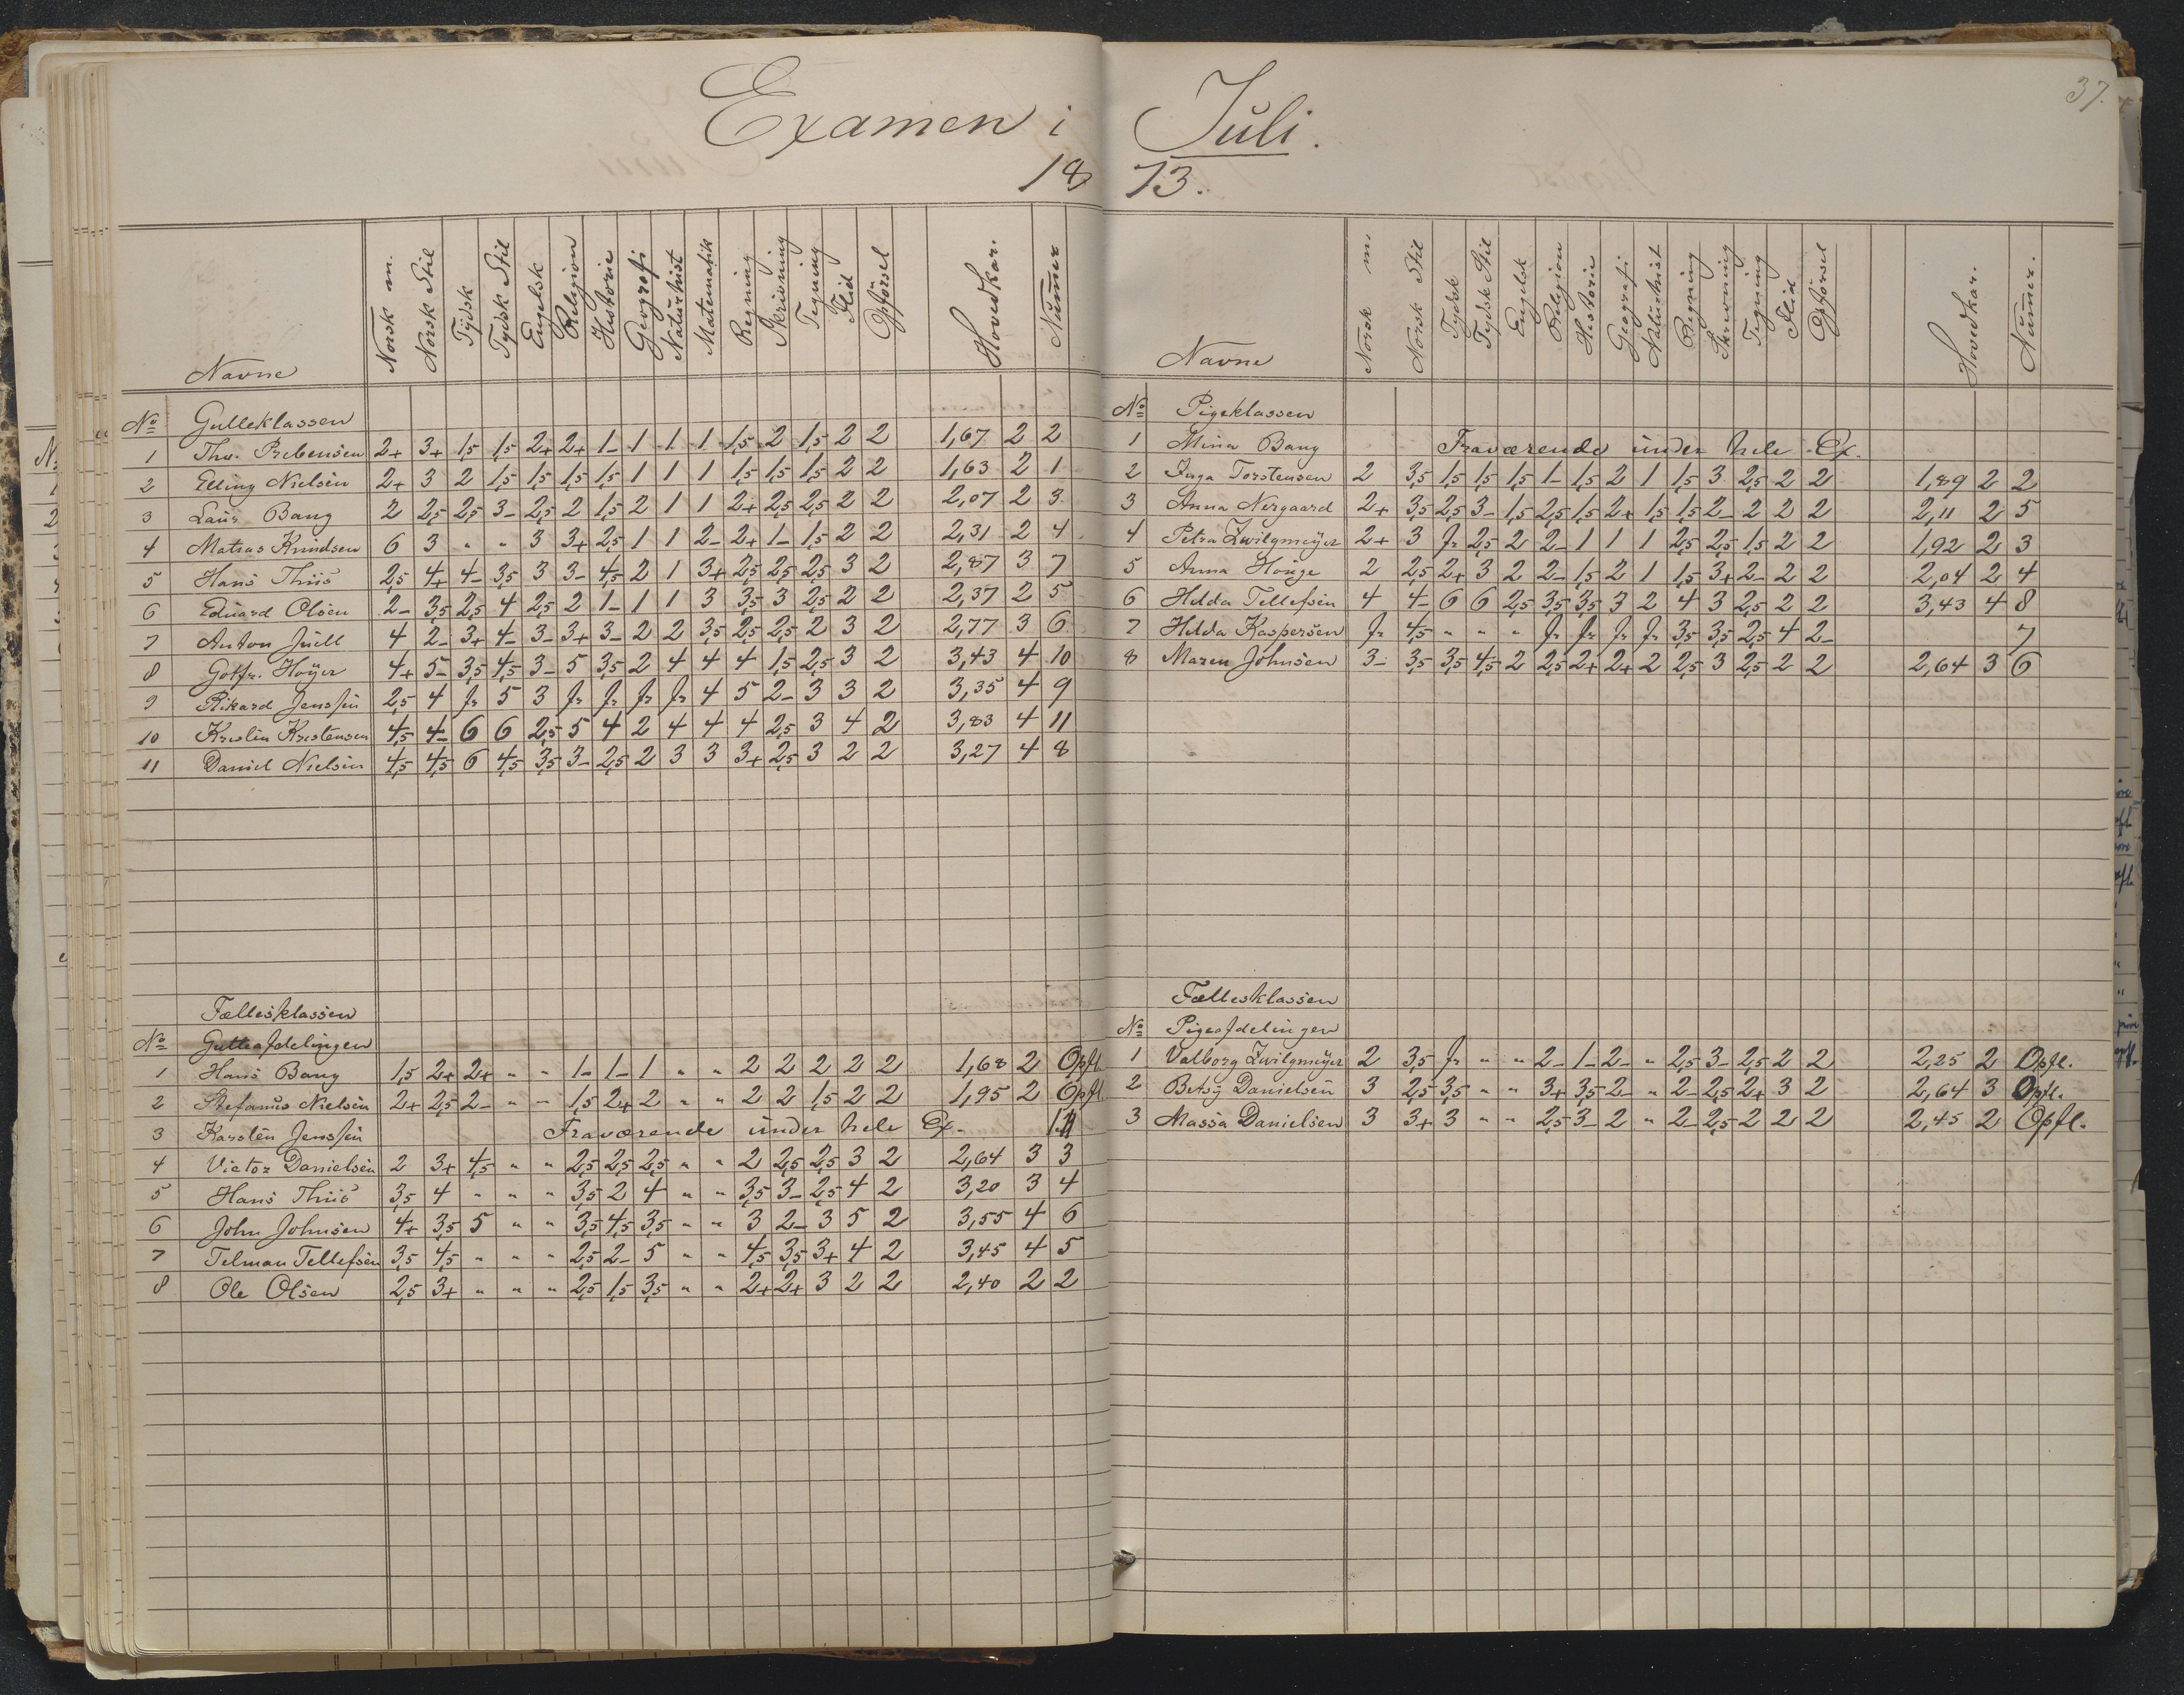 37.
Examen i Juli.
1873.
Navne Norsk m. Norsk Stil Tydsk Tydsk Stil Engelsk Religion Historie Geografi Naturhist Matematik Regning Skrivning Tegning Flid Opförsel Hovedkar. Numer
No Gutteklassen
1 Ths. Prebensen 2+ 3+ 1,5 1,5 2+ 2+ 1- 1 1 1 1,5 2 1,5 2 2 1,67 2 2
2 Elling Nielsen 2+ 3 2 1,5 1,5 1,5 1,5 1 1 1 1,5 1,5 1,5 2 2 1,63 2 1
3 Laur Bang 2 2,5 2,5 3- 2,5 2 1,5 2 1 1 2+ 2,5 2,5 2 2 2,07 2 3
4 Matias Knudsen 6 3 " " 3 3+ 2,5 1 1 2- 2+ 1- 1,5 2 2 2,31 2 4
5 Hans Thiis 2,5 4+ 4- 3,5 3 3- 4,5 2 1 3+ 2,5 2,5 2,5 3 2 2,87 3 7
6 Eduard Olsen 2- 3,5 2,5 4 2,5 2 1- 1 1 3 3,5 3 2,5 2 2 2,37 2 5
7 Anton Juell 4 2- 3+ 4- 3- 3+ 3- 2 2 3,5 2,5 2,5 2 3 2 2,77 3 6
8 Gotfr. Höyer 4+ 5- 3,5 4,5 3- 5 3,5 2 4 4 4 1,5 2,5 3 2 3,43 4 10
9 Rikard Jenssen 2,5 4 fr 5 3 fr fr fr fr 4 5 2- 3 3 2 3,35 4 9
10 Kristen Kristensen 4,5 4- 6 6 2,5 5 4 2 4 4 4 2,5 3 4 2 3,83 4 11
11 Daniel Nielsen 4,5 4,5 6 4,5 3,5 3- 2,5 2 3 3 3+ 2,5 3 2 2 3,27 4 8
Fællesklassen
No Gutteafdelingen
1 Hans Bang 1,5 2+ 2+ " " 1- 1- 1 " " 2 2 2 2 2 1,68 2 Opfl.
2 Stefanus Nielsen 2+ 2,5 2- " " 1,5 2+ 2 " " 2 2 1,5 2 2 1,95 2 Opfl.
3 Karsten Jenssen Fraværende under hele Ex.
4 Victor Danielsen 2 3+ 4,5 " " 2,5 2,5 2,5 " " 2 2,5 2,5 3 2 2,64 3 3
5 Hans Thiis 3,5 4 " " " 3,5 2 4 " " 3,5 3- 2,5 4 2 3,20 3 4
6 John Johnsen 4+ 3,5 5 " " 3,5 4,5 3,5 " " 3 2- 3 5 2 3,55 4 6
7 Telman Tellefsen 3,5 4,5 " " " 2,5 2- 5 " " 4,5 3,5 3+ 4 2 3,45 4 5
8 Ole Olsen 2,5 3+ " " " 2,5 1,5 3,5 " " 2+ 2+ 3 2 2 2,40 2 2
Navne Norsk m. Norsk Stil Tydsk Tydsk Stil Engelsk Religion Historie Geografi Naturhist Regning Skrivning Tegning Flid Opförsel Hovedkar. Numer.
No Pigeklassen
1 Mina Bang Fraværende under hele Ex.
2 Inga Torstensen 2 3,5 1,5 1,5 1,5 1- 1,5 2 1 1,5 3 2,5 2 2 1,89 2 2
3 Anna Nergaard 2+ 3,5 2,5 3- 1,5 2,5 1,5 2+ 1,5 1,5 2- 2 2 2 2,11 2 5
4 Petra Zwilgmeyer 2+ 3 fr 2,5 2 2- 1 1 1 2,5 2,5 1,5 2 2 1,92 2 3
5 Anna Houge 2 2,5 2+ 3 2 2- 1,5 2 1 1,5 3+ 2- 2 2 2,04 2 4
6 Hilda Tellefsen 4 4- 6 6 2,5 3,5 3,5 3 2 4 3 2,5 2 2 3,43 4 8
7 Hilda Kaspersen fr 4,5 " " " fr fr fr fr 3,5 3,5 2,5 4 2- 7
8 Maren Johnsen 3- 3,5 3,5 4,5 2 2,5 2+ 2+ 2 2,5 3 2,5 2 2 2,64 3 6
Fællesklassen
No Pigeafdelingen
1 Valborg Zwilgmeyer 2 3,5 fr " " 2- 1- 2- " 2,5 3- 2,5 2 2 2,25 2 Opfl.
2 Betsy Danielsen 3 2,5 3,5 " " 3+ 3,5 2- " 2- 2,5 2+ 3 2 2,64 3 Opfl.
3 Massa Danielsen 3 3+ 3 " " 2,5 3- 2 " 2- 2,5 2 2 2 2,45 2 Opfl.